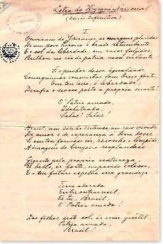 Letra do Hymno Nacional
I
Ouviram do Ypiranga as margens placidas
De um povo heroico o brado retumbante,
E o sol da liberdade, em raios fulgidos,
Brilhou no céo da patria nesse instante.
Se o penhor dessa igualdade
Conseguimos conquistar com braço forte,
Em teu seio, ó Liberdade,
Desafia o nosso peito a propria morte!
O' Patria amada,
Idolatrada,
Salve! Salve!
Brasil, um sonho intenso, um raio vivido
De amor e de esperança á terra desce,
Se em teu formoso céo, risonho e limpido,
A imagem do Cruzeiro resplandece.
Gigante pela propria natureza,
És bello, és forte, impavido colosso,
E o teu futuro espelha essa grandeza
Terra adorada
Entre outras mil,
És tu, Brasil,
O' Patria amada!
Dos filhos deste solo és mãe gentil,
Patria amada,
Brasil!